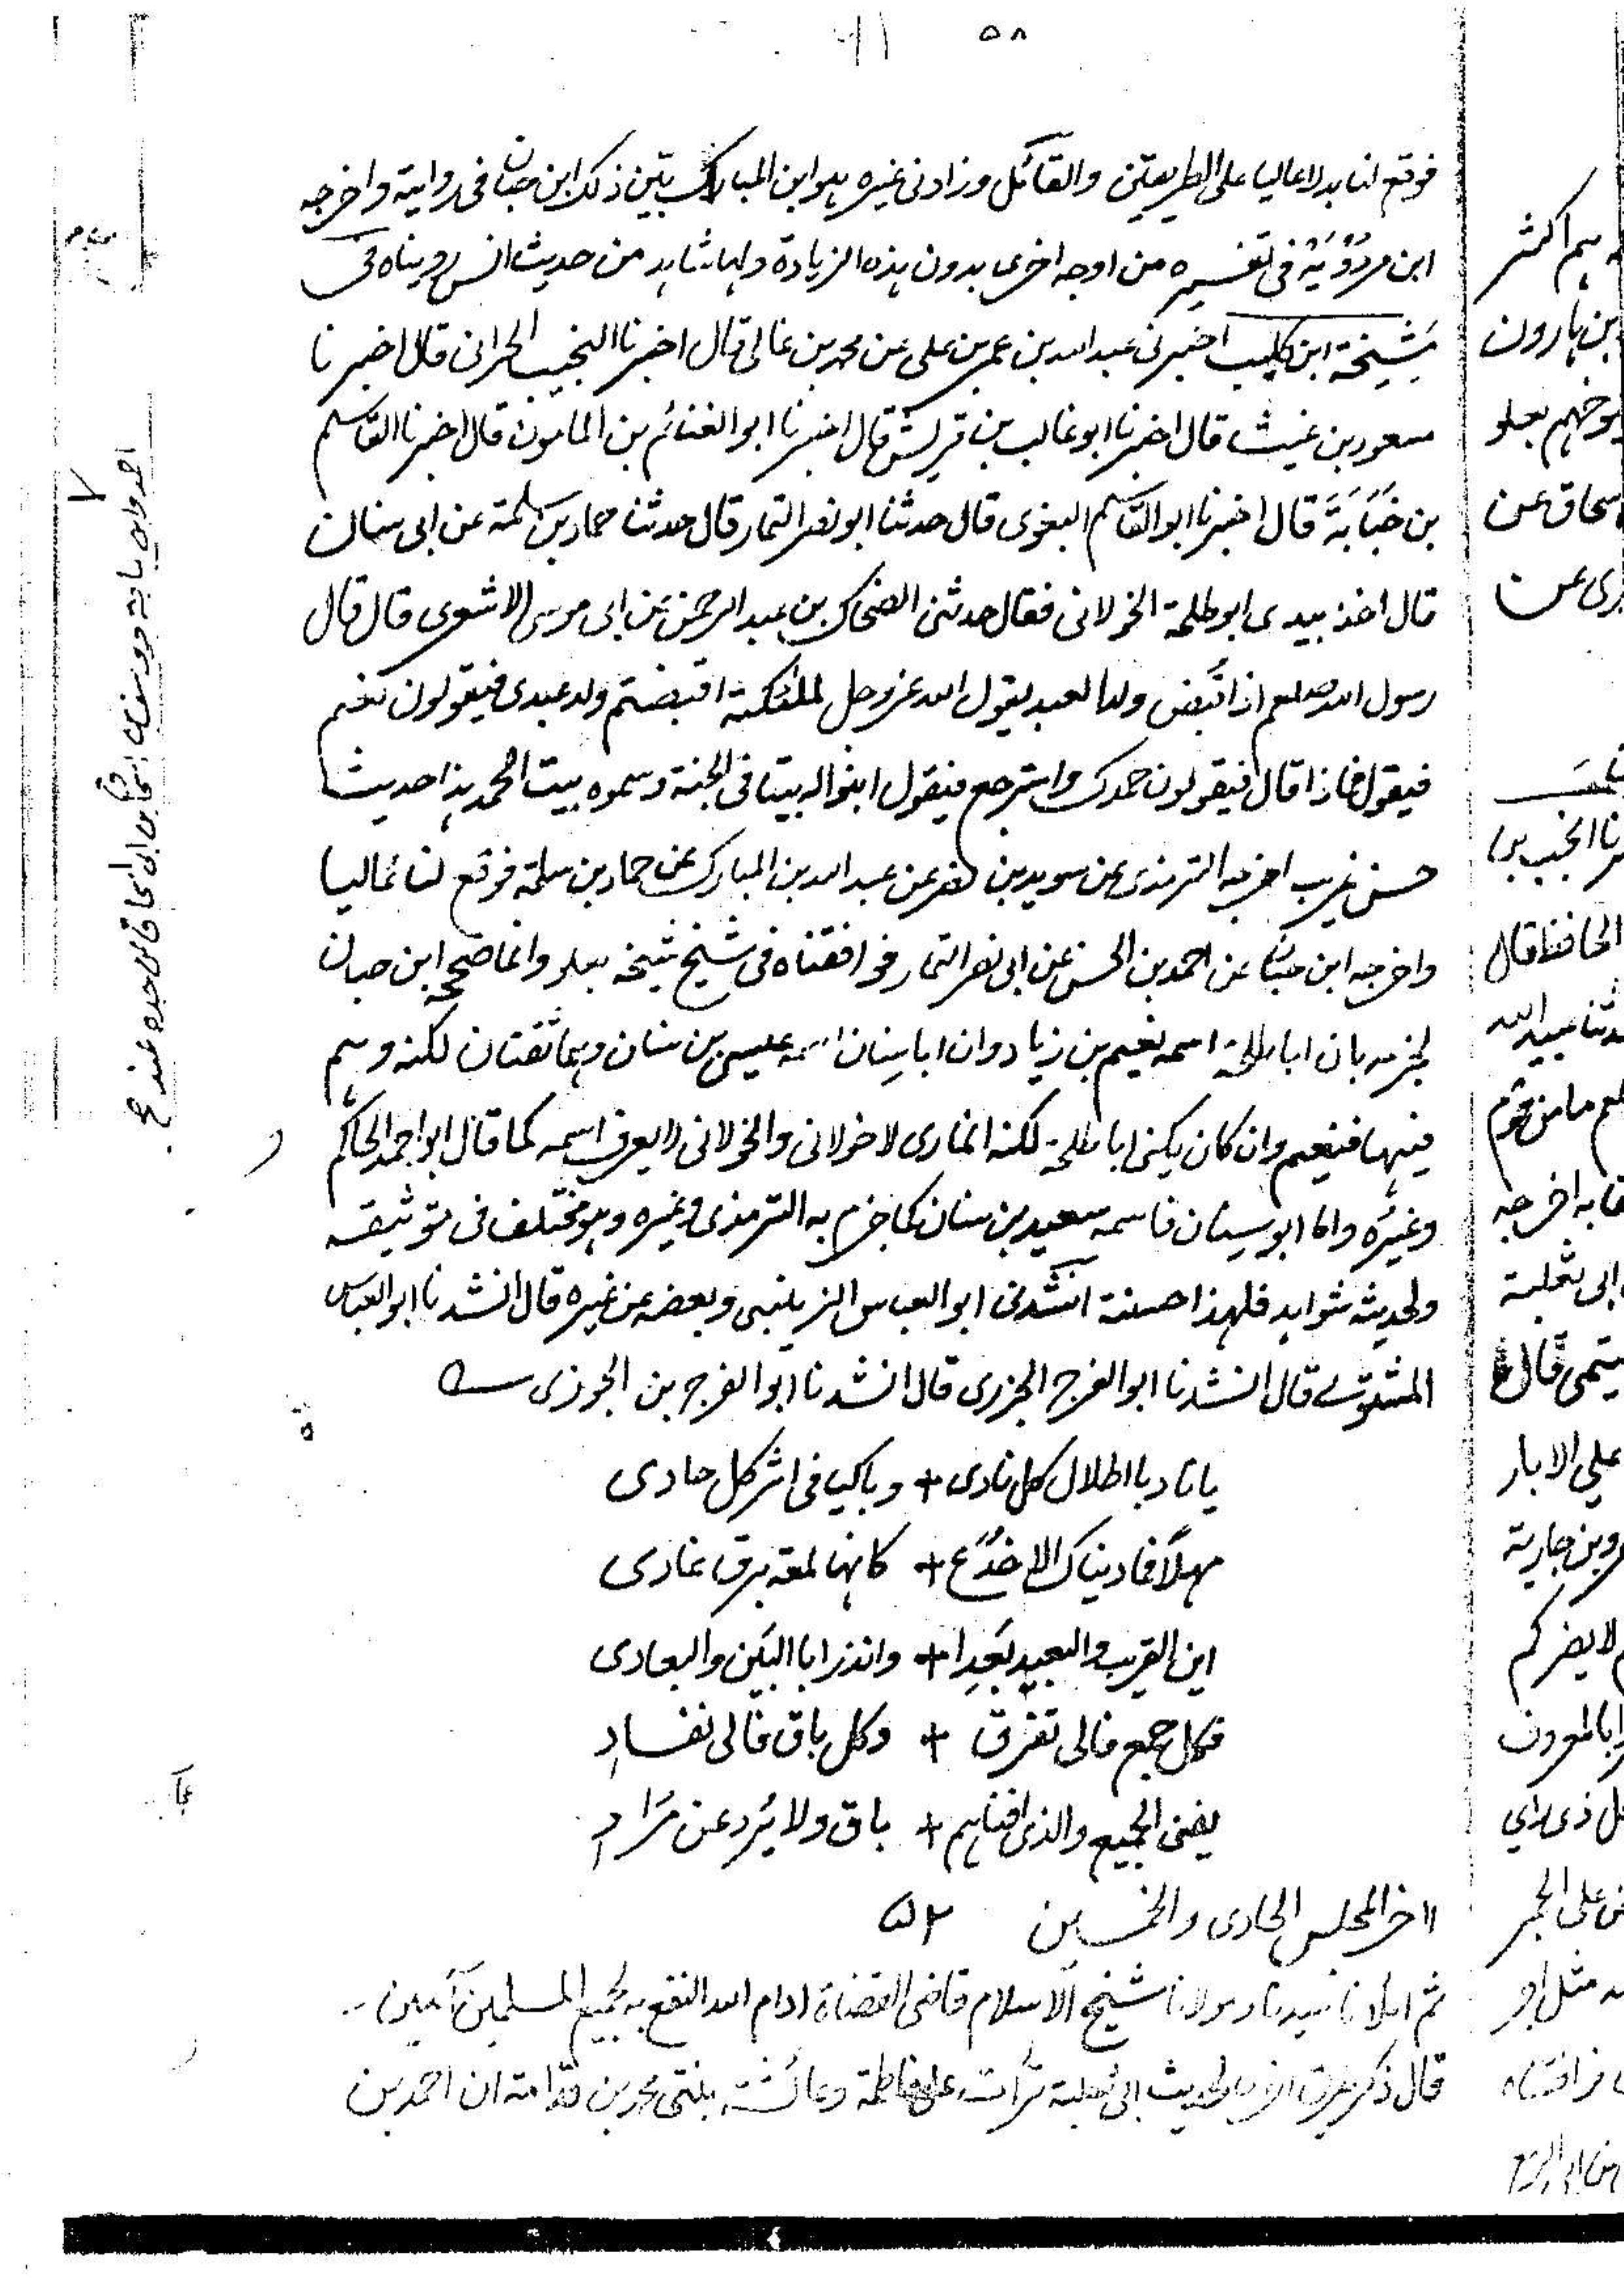 ٥٨
فوقع لنا بدلا عاليا على الطريقين والقائل وزادنى غيره هو ابن المبارك بيّن ذلك ابن حبان فى روايته واخرجه
ابن مردُوَيْه فى تفسيره من اوجه اخرى بدون هذه الزيادة ولها شاهد من حديث انس رويناه فى
مَشيخة ابن كليب اخبرنى عبد الله بن عمر بن على عن محمد بن غالى قال اخبرنا النجيب الحرانى قال اخبرنا
مسعود بن غيث قال اخبرنا ابو غالب بن قريش قال اخبرنا ابو الغنائم بن المامون قال اخبرنا القاسم
بن حَبَابَةَ قال اخبرنا ابو القاسم البغوى قال حدثنا ابو نصر التمار قال حدثنا حماد بن سلمة عن ابى سنان
قال اخذ بيدى ابو طلحة الخولانى فقال حدثنى الضحاك بن عبد الرحمن عن ابى موسى الاشعرى قال قال
رسول الله صلعم اذا قبض ولد العبد يقول الله عز وجل لملئكته اقبضتم ولد عبدى فيقولون نعم
فيقول فماذا قال فيقولون حمدك واسترجع فيقول ابنوا له بيتا فى الجنة وسموه بيت الحمد هذا حديث
حسن غريب اخرجه الترمذى عن سويد بن نصر عن عبد الله بن المبارك عن حماد بن سلمة فوقع لنا عاليا
واخرجه ابن حبان عن احمد بن الحسن عن ابى نصر التمار فوافقناه فى شيخ شيخه بعلو وانما صححه ابن حبان
لجزمه بان ابا طلحة اسمه نعيم بن زياد وان ابا سِنان اسمه عيسى بن سنان وهما ثقتان لكنه وهم
فيهما فنعيم وان كان يكنى ابا طلحة لكنه انمارى لا خولانى والخولانى لا يعرف اسمه كما قال ابو احمد الحاكم
وغيره واما ابو سنان فاسمه سعيد بن سنان كما جزم به الترمذى وغيره وهو مختلف فى توثيقه
ولحديثه شواهد فلهذا حسنته انشدنى ابو العباس الزينبى وبعضه عن غيره قال انشدنا ابو العباس
المشتولى قال انشدنا ابو الفرج الجزرى قال انشدنا ابو الفرج بن الجوزى
يا نادبا اطلال كل نادى + وباكيا فى اثر كل حادى
مهلاً فما دنياك الا خُدَع + كانها لمعة برق غادى
اين القريب والبعيد بَعِدا + وانذرا بالبَين والبعادى
فكل جمع فالى تفرق + وكل باق فالى نفاد
يفنى الجميع والذى افناهم + باق ولا يُرد عن مُراد
اخر المجلس الحادى والخمسين ٥٢
ثم املانا سيدنا ومولانا شيخ الاسلام قاضى القضاة ادام الله النفع به لجميع المسلمين آمين
قال ذكر طريق اخرى لحديث ابى ثعلبة قرأت على فاطمة وعائشة بنتى محمد بن قدامة ان احمد بن
هم اكثر
بن هارون
بعلو
سحاق عن
عن
الحافظ قال
عبيد الله
به اخرجه
ابى ثعلبة
قال
على الابار
بن جارية
لا يضركم
على الجمر
مثل